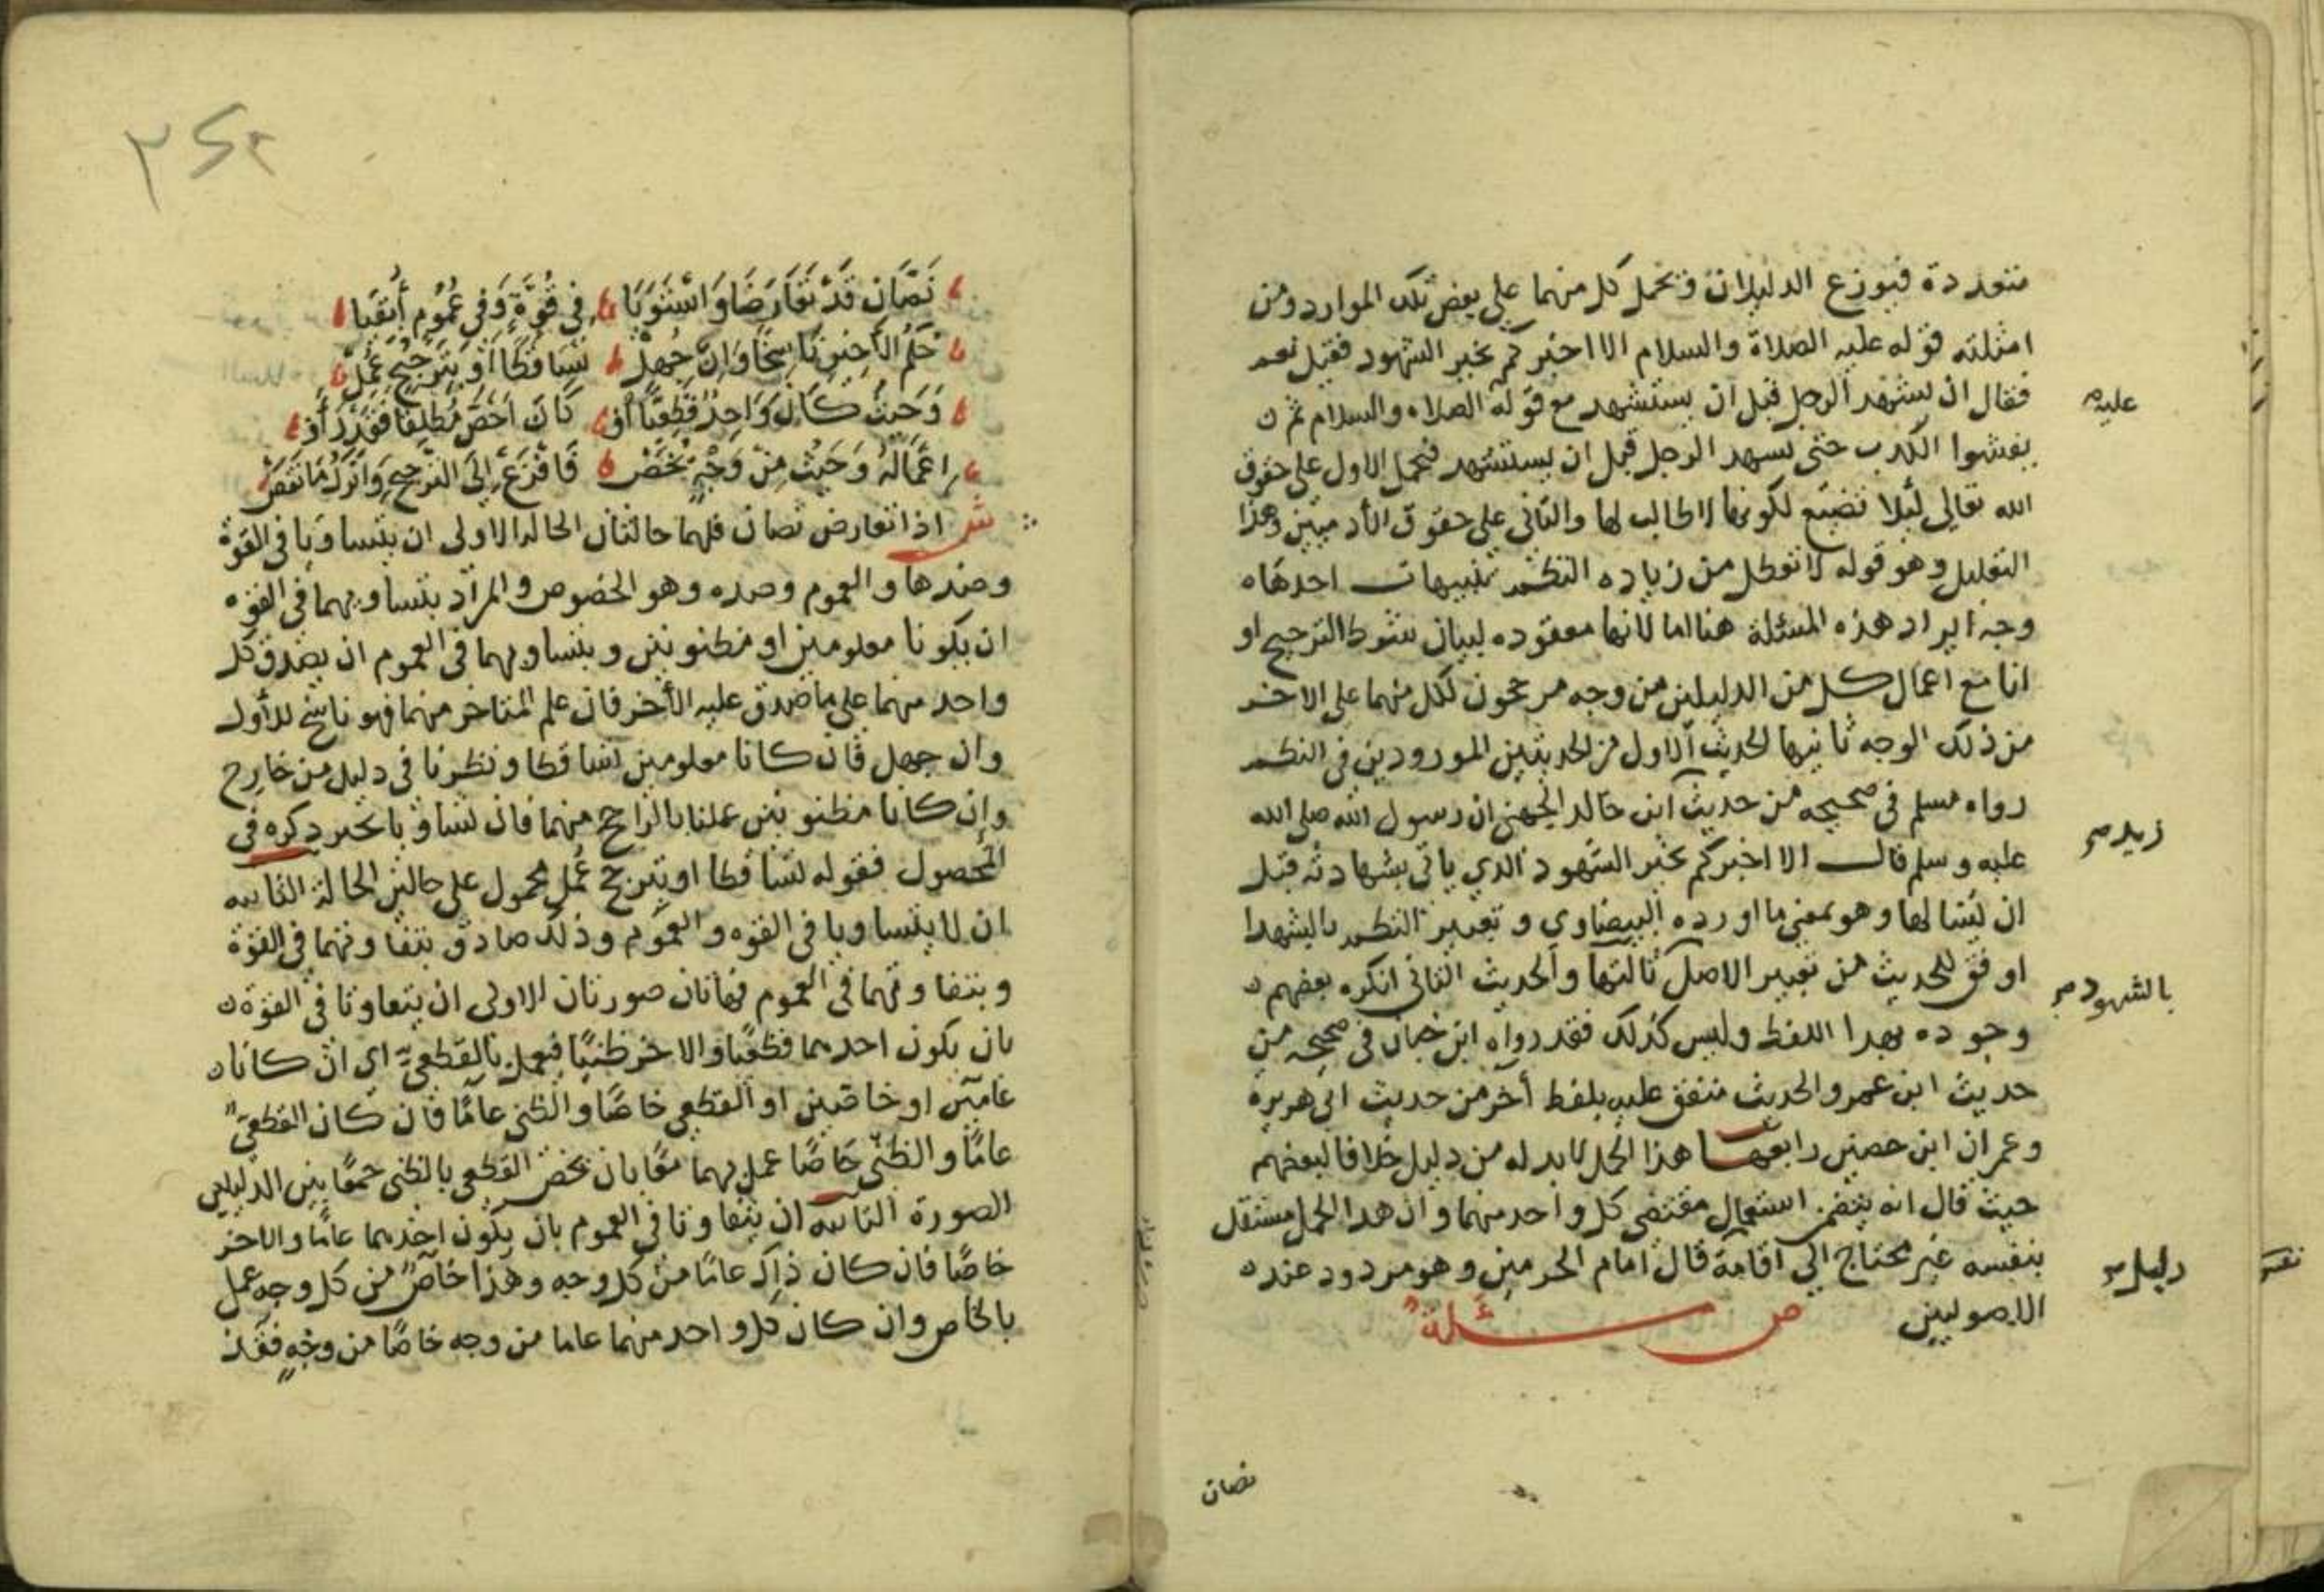 متعددة فيوزع الدليلان ونحمل كل منهما على بعض تلك الموارد ومن
امثلته قوله عليه الصلاة والسلام الا اخبركم بخير الشهود فقيل نعم
فقال ان يشهد الرجل قبل ان يستشهد مع قوله الصلاه والسلام ثم
عليه
يفشوا الكذب حتى يشهد الرجل قبل ان يستشهد فيحمل الاول على حقوق
الله تعالى لئلا تضيع لكونها لا طالب لها والثانى على حقوق الآدميين وهذا
التعليل وهو قوله لا تعطل من زياده النظم تنبيهات احدها
وجه ايراد هذه المسئلة هنا اما لانها معقوده لبيان شوط الترجيح او
انا مع اعمال كل من الدليلين من وجه مرجحون لكل منهما على الاخر
من ذلك الوجه ثانيها الحديث الاول من الحديثين الموردين فى النظم
رواه مسلم فى صحيحه من حديث ابن خالد الجهنى ان رسول الله صلى الله
زيد صح
عليه وسلم قال الا اخبركم بخير الشهود الذي ياتى بشهادته قبل
ان يسالها وهو بمعنى ما اورده البيضاوي وتعبير النظم بالشهدا
اوفق للحديث من تعبير الاصل ثالثها والحديث الثانى انكره بعضهم
بالشهود صح
وجوده بهذا اللفظ وليس كذلك فقد رواه ابن حبان فى صحيحه من
حديث ابن عمر والحديث متفق عليه بلفظ آخر من حديث ابى هريرة
وعمران ابن حصين رابعها هذا الحمل لابد له من دليل خلافا لبعضهم
حيث قال انه يتضمن استعمال مقتضى كل واحد منهما وان هذا الحمل مستقل
بنفسه غير محتاج الى اقامة قال امام الحرمين وهو مردود عند
دليل صح
الاصوليين ص مسئلة
نصان
نصان قد تعارضا واستويا في قوة وفي عموم أبقيا
علم الأخير ناسخا وان جهل تساقطا أو بترجيح عمل
وحيث كان واحد قطعيا أو كان اخص مطلقا فقد رأوا
إعماله وحيث من وجه يخص فافزع إلى الترجيح واترك ما نقص
ش اذا تعارض نصان فلهما حالتان الحاله الاولى ان يتساويا فى القوة
وضدها والعموم وضده وهو الخصوص والمراد بتساويهما فى القوه
ان يكونا معلومين او مظنونين وبتساويهما فى العموم ان يصدق كل
واحد منهما على ما صدق عليه الآخر فان علم المتاخر منهما فهو ناسخ للأول
وان جهل فان كانا معلومين تساقطا ونظرنا فى دليل من خارج
وإن كانا مظنونين عملنا بالراجح منهما فان تساويا تخير ذكره فى
المحصول فقوله تساقطا او بترجيح عُمل محمول على حالين الحالة الثانيه
ان لا يتساويا فى القوه والعموم وذلك صادق بتفاوتهما فى القوة
وبتفاوتهما فى العموم فهاتان صورتان الاولى ان يتفاوتا فى القوة
بان يكون احدهما قطعيًا والاخر ظنيًا فيعمل بالقطعيّ اي ان كانا
عامين او خاصين او القطعى خاصًا والظنى عامًا فان كان القطعى
عامًا والظنى خاصًا عمل بهما معًا بان نخص القطعى بالظنى جمعًا بين الدليلين
الصورة الثانيه ان يتفاوتا فى العموم بان يكون احدهما عامًا والاخر
خاصًا فان كان ذاك عامًا من كل وجه وهذا خاصٌ من كل وجه عمل
بالخاص وان كان كل واحد منهما عاما من وجه خاصًا من وجهٍ فقد